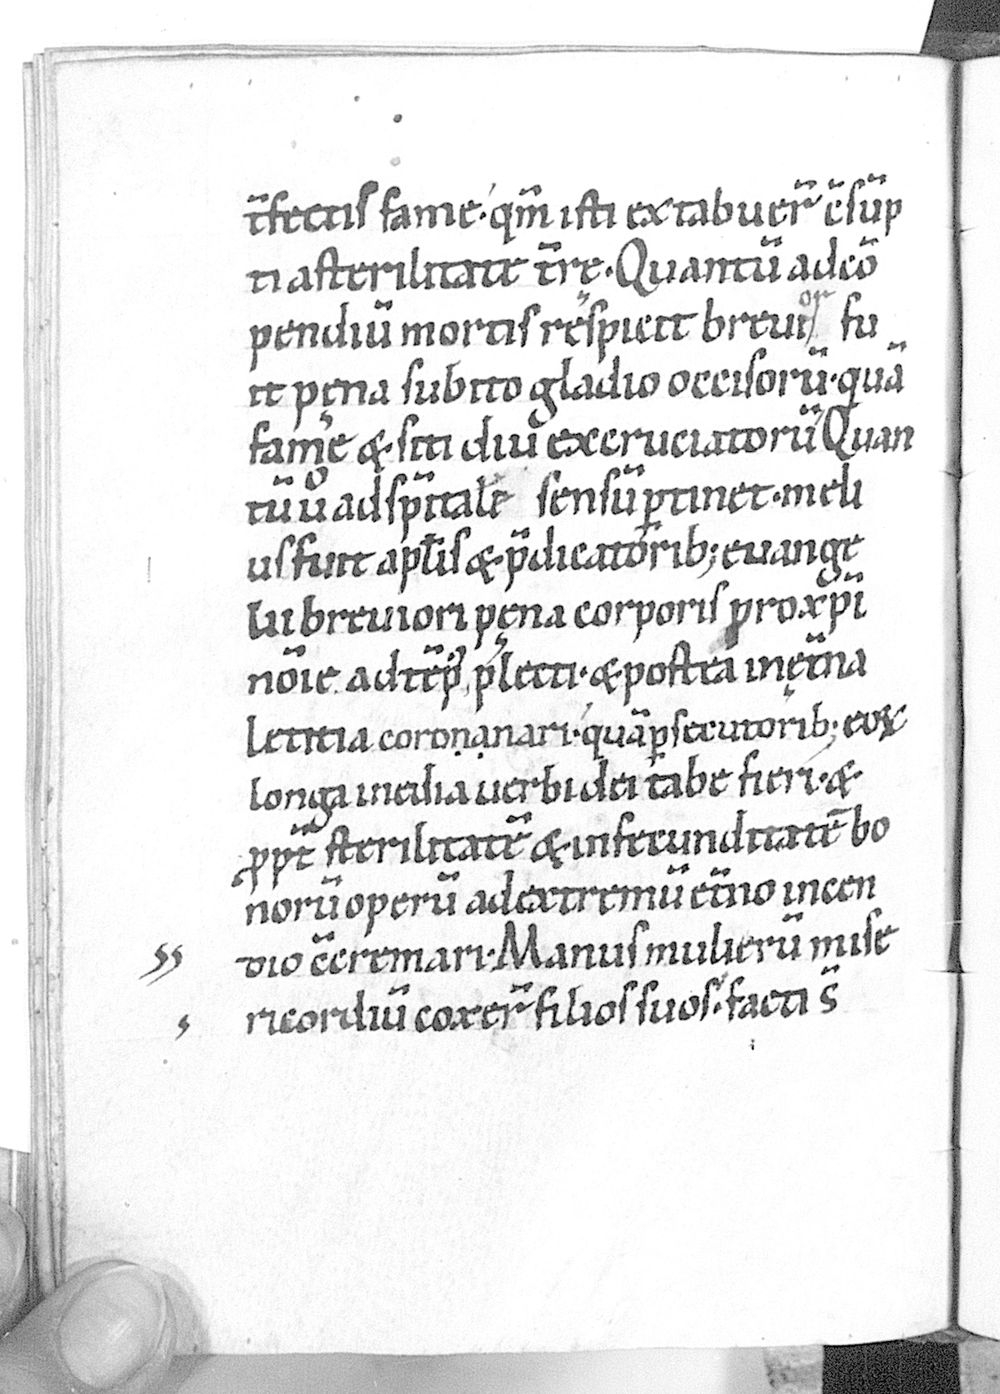 t̄fectis fame· qm̄ isti extabuer̄ c̄sūp
ti asterilitate t̄re· Quantū adcō
pendiū mortis respicit breuior fu
it pęna subito gladio occisorū· quā
fame & siti diu excruciatorū Quan
tū u͛o ad sp̄itale sensū ꝑtinet· meli
us fuit aplis & p̄dicatorib; euange
lii breuiori pęna corporis pro xp̄i
nōie ad tēp; plecti· & postea in ęt̄na
letitia coronanari· quā ꝑsecutorib; eoꝝ
longa inedia uerbi dei tabe fieri· &
ꝓpt̄ sterilitatē & infecunditatē bo
norū operū ad extremū et̄no incen
dio c̄cremari· Manus mulierū mise
ricordiū coxer̄ filios suos· facti s̄